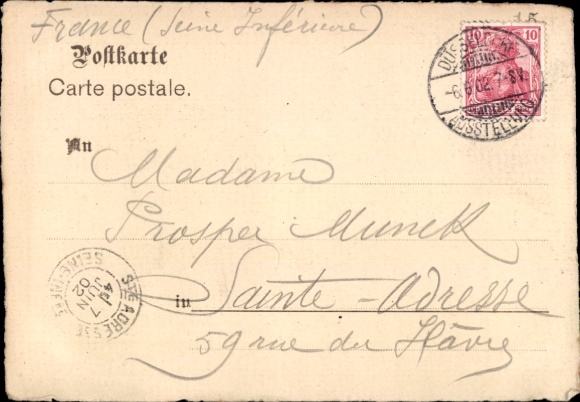 France (Seine Inférieure)
15
Postkarte
Carte postale.
10 10
DÜSSELDORF
-6.6.02.7-8V.
AUSSTELLUNG
An
Madame
Prosper Munck
in Sainte-Adresse
59 rue du Hâvre
STE ADRESSE
4E 7
JUIN
02
SEINE-INFRE